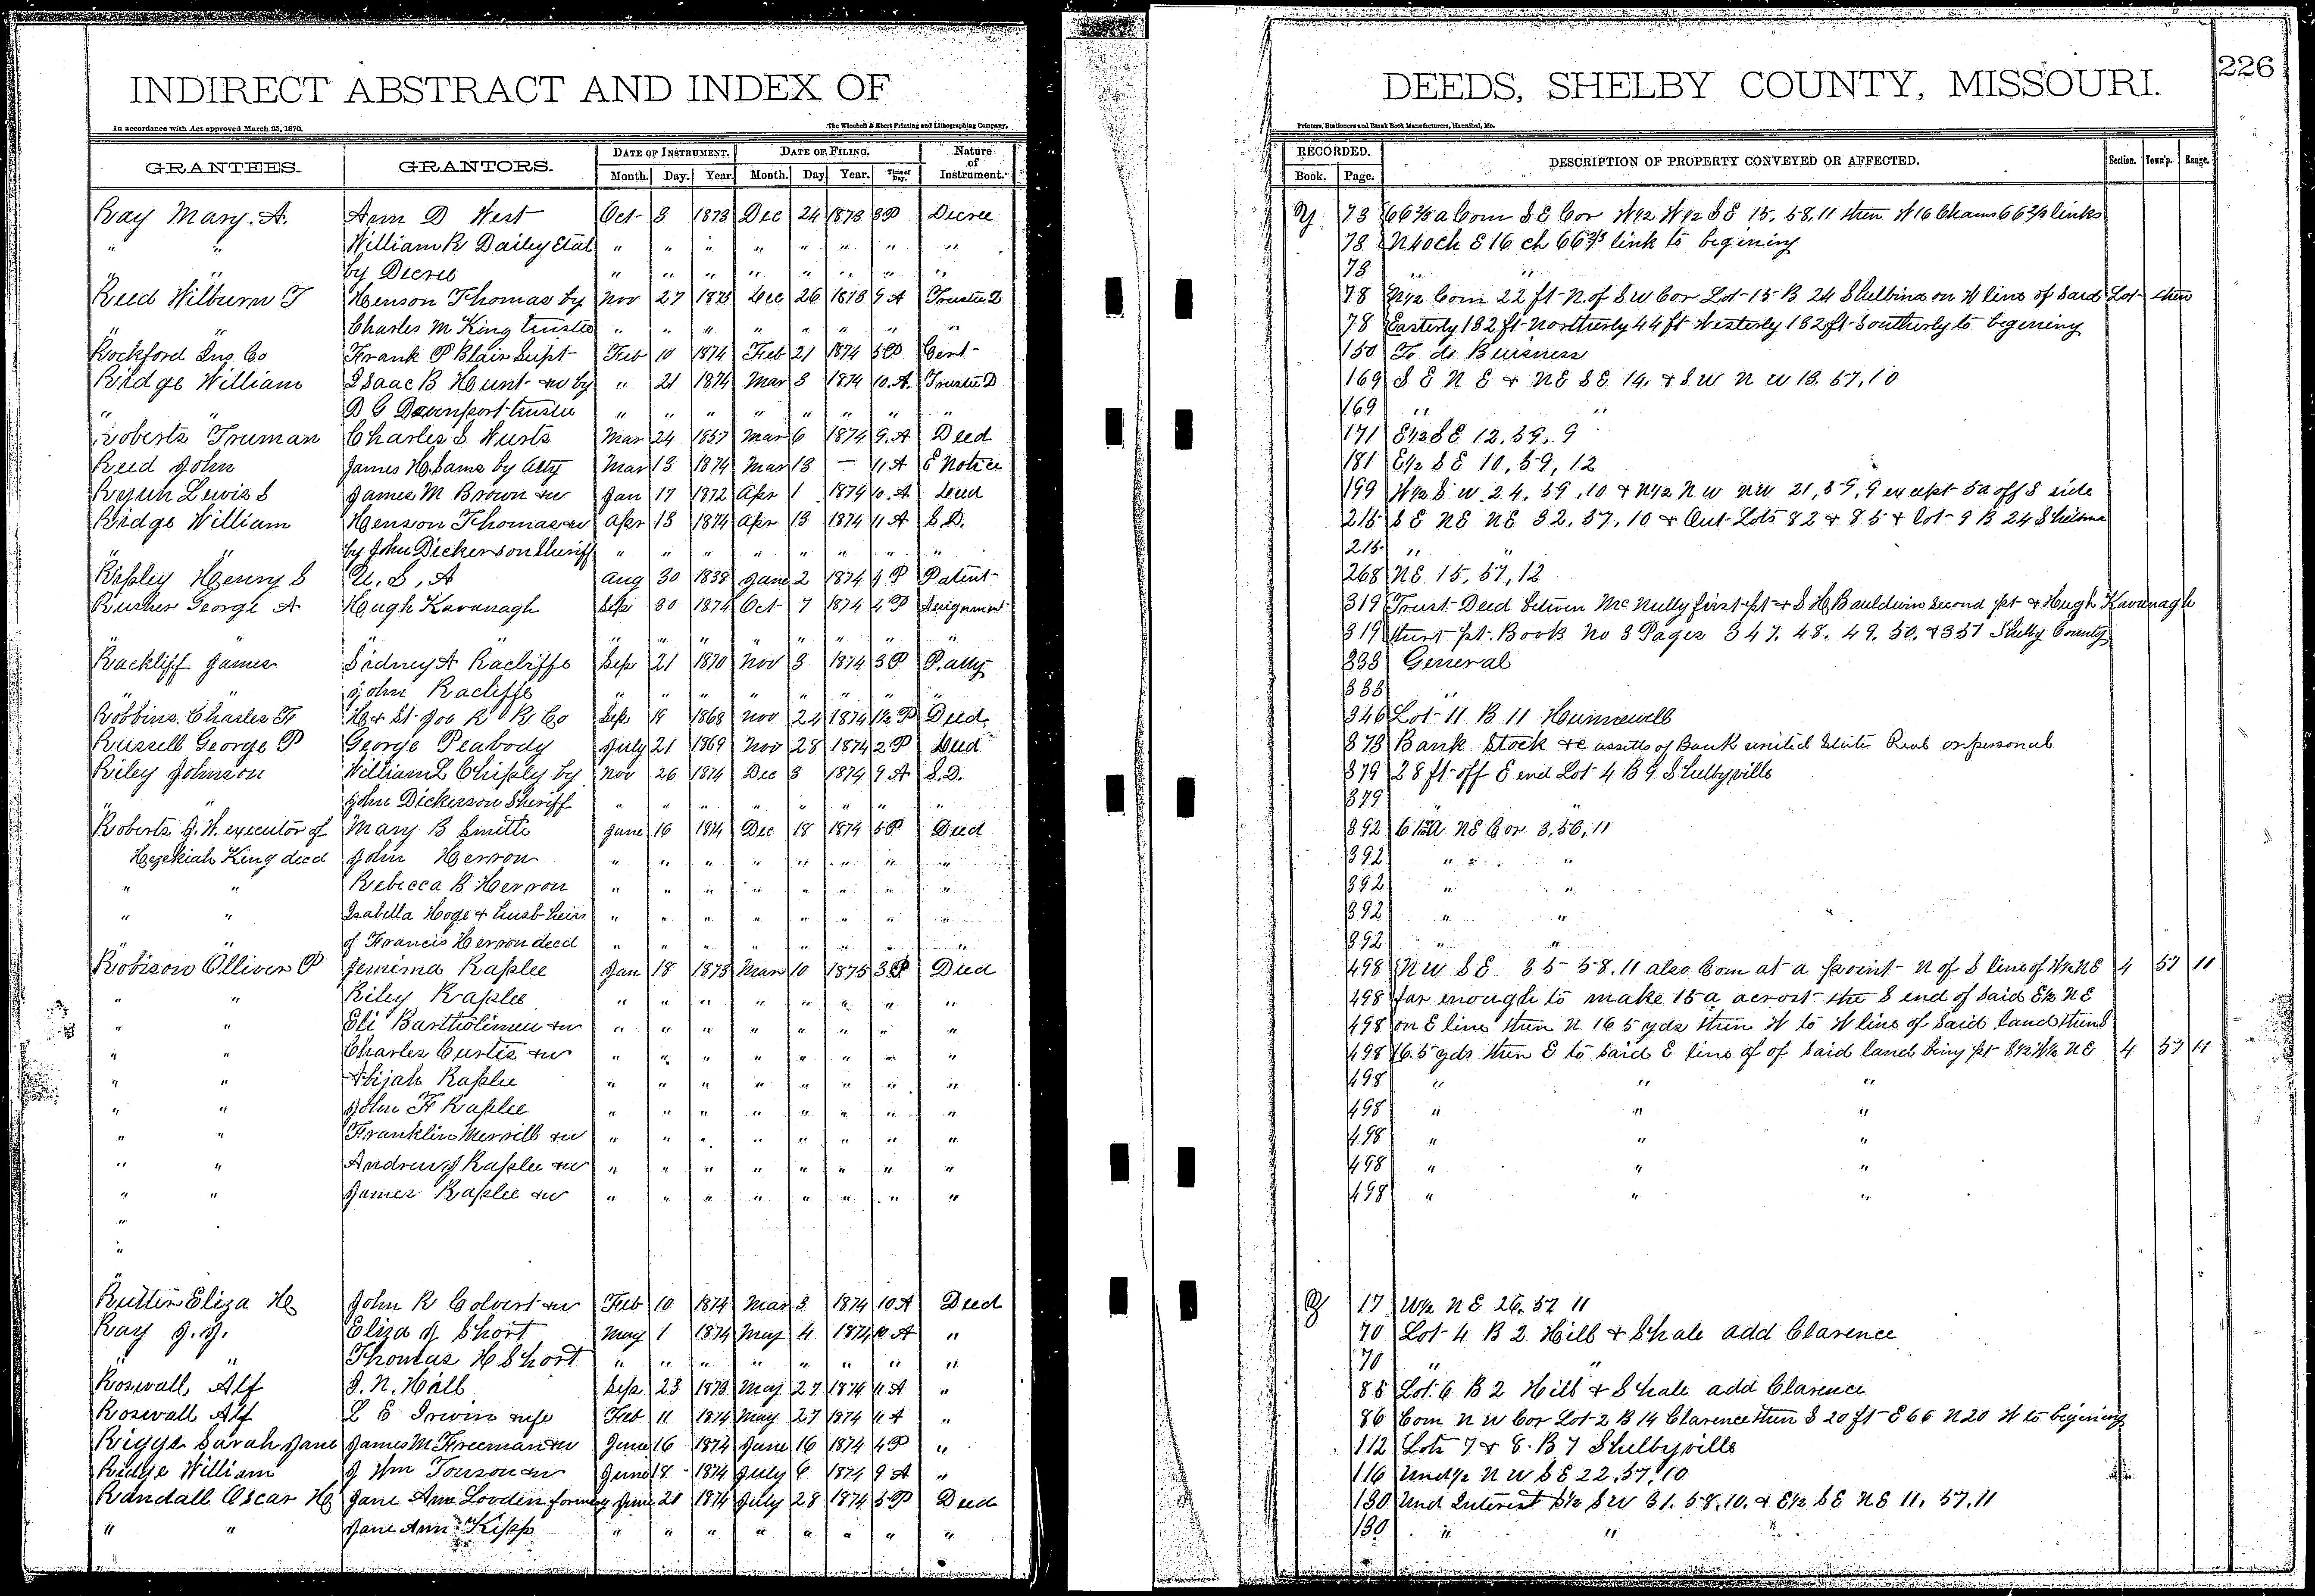 INDIRECT ABSTRACT AND INDEX OF DEEDS, SHELBY COUNTY, MISSOURI. 226
In accordance with Act approved March 25, 1870. The Winchell & Ebert Printing and Lithographing Company, Printers, Stationers and Blank Book Manufacturers, Hannibal, Mo.
GRANTEES. GRANTORS. DATE OF INSTRUMENT. DATE OF FILING. Nature of Instrument. RECORDED. DESCRIPTION OF PROPERTY CONVEYED OR AFFECTED. Section. Town'p. Range.
Month. Day. Year. Month. Day Year. Time of Day. Book. Page.
Ray Mary. A. Ann D West Oct 3 1873 Dec 24 1873 3P Decree Y 78 66 2/3 a Com S E Cor W 1/2 W 1/2 S E 15, 58, 11 then W 16 Chains 66 2/3 links
" " William R Dailey Etal " " " " " " " " 78 N 40 ch E 16 ch 66 2/3 link to begining
" " by Decree " " " " " " " " 78 " "
Reed Wilburn T Henson Thomas by Nov 27 1873 Dec 26 1873 9 A Trustee D 78 N 1/2 Com 22 ft N of S W Cor Lot 15 B 24 Shelbina on W line of Said Lot then
Charles M King trustee " " " " " " " " 78 Easterly 132 ft Northerly 44 ft Westerly 132 ft Southerly to begening
Rockford Ins Co Frank P Blair Supt Feb 10 1874 Feb 21 1874 5P Cert 150 To do Buisness
Ridge William Isaac B Hunt &w by " 21 1874 Mar 3 1874 10.A. Trustee D 169 S E N E & N E S E 14. & S W N W 13. 57, 10
" " D G Davenport trustee " " " " " " " " 169 " "
Roberts Truman Charles S Wurts Mar 24 1857 Mar 6 1874 9.A Deed 171 E 1/2 S E 12, 59, 9
Reed John James H. Sams by Atty Mar 13 1874 Mar 13 — 11 A E Notice 181 E 1/2 S E 10, 59, 12
Lewis S James M Brown &w Jan 17 1872 Apr 1 1874 10.A Deed 199 W 1/2 S W 24, 59, 10 & N 1/2 N W N W 21, 59, 9 except 5a off S side
Ridge William Henson Thomas &w Apr 13 1874 Apr 13 1874 11 A S.D. 215 S E N E N E 32. 57. 10 & Out Lots 82 & 85 & Lot 9 B 24 Shelbina
" " by John Dickerson Sheriff " " " " " " " " 215 " "
Ripley Henry S U. S. A Aug 30 1838 June 2 1874 4 P Patent 268 N E 15, 57, 12
Rusher George A Hugh Kavanagh Sep 30 1874 Oct 7 1874 4 P Assignment 319 Trust Deed between McNully first pt & S H Bauldwin Second pt & Hugh Kavanagh
" " " " " " " " " " " 319 pt. Book No 3 Pages 347. 48. 49. 50. & 351 Shelby County
Rackliff James Sidney A Racliffe Sep 21 1870 Nov 3 1874 3 P P. atty 333 General
" " John Racliffe " " " " " " " " 333 "
Robbins Charles F H & St Joe R R Co Sep 19 1868 Nov 24 1874 1 1/2 P Deed 346 Lot 11 B 11 Hunnewell
Russell George P George Peabody July 21 1869 Nov 28 1874 2 P Deed 373 Bank Stock &c assetts of Bank united State Real or personal
Riley Johnson William L Chiply by Nov 26 1874 Dec 3 1874 9 A S.D. 379 28 ft off E end Lot 4 B 9 Shelbyville
" " John Dickerson Sheriff " " " " " " " " 379 " "
Roberts J. W. executor of Mary B Smith June 16 1874 Dec 18 1874 5P Deed 392 N E Cor 3, 56, 11
Hezekiah King decd John Herron " " " " " " " " 392 " "
" " Rebecca B Herron " " " " " " " " 392 " "
" " Isabella Hoge & husb heirs " " " " " " " " 392 " "
" " of Francis Herron decd " " " " " " " " 392 " "
Robison Olliver P Jemima Raplee Jan 18 1873 Mar 10 1875 3 P Deed 498 N W S E 35 58, 11 also Com at a point N of S line of W 1/2 N E 4 57 11
" " Riley Raplee " " " " " " " " 498 far enough to make 15 a acrost the S end of said E 1/2 N E
" " Eli Bartholimew &w " " " " " " " " 498 on E line then N 16 5 yds then W to W line of Said land then S
" " Charles Curtis &w " " " " " " " " 498 16.5 yds then E to said E line of of said land being pt S 1/2 W 1/2 N E 4 57 11
" " Abijah Raplee " " " " " " " " 498 " " "
" " John F Raplee " " " " " " " " 498 " " "
" " Franklin Merrill &w " " " " " " " " 498 " " "
" " Andrew J Raplee &w " " " " " " " " 498 " " "
" " James Raplee &w " " " " " " " " 498 " " "
"
"
"
Eliza H John R Colvert &w Feb 10 1874 Mar 3 1874 10 A Deed 17 W 1/2 N E 26. 57 11
Ray J. J. Eliza J Short May 1 1874 May 4 1874 10 A " 70 Lot 4 B 2 Hill & Shale add Clarence
" " Thomas H Short " " " " " " " " 70 " "
Roswall Alf J. N. Hall Sep 23 1873 May 27 1874 11 A " 85 Lot 6 B 2 Hill & Shale add Clarence
Roswall Alf L E Irwin Feb 11 1874 May 27 1874 11 A " 86 Com N W Cor Lot 2 B 14 Clarence then S 20 ft E 66 N 20 W to begining
Riggs Sarah Jane James M Freeman &w June 16 1874 June 16 1874 4 P " 112 Lots 7 & 8. B 7 Shelbyville
Ridge William J Wm Towson &w June 18 1874 July 6 1874 9 A " 116 Und 1/2 N W S E 22, 57, 10
Randall Oscar H Jane Ann Lovden formerly June 20 1874 July 28 1874 5 P Deed 130 Und Interest S 1/2 S W 31. 58, 10. & E 1/2 S E N E 11, 57, 11
" " Jane Ann Kipp " " " " " " " " 130 " "